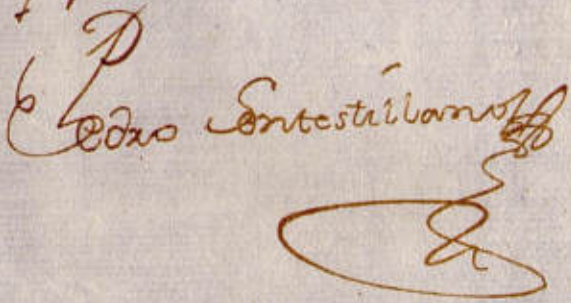 Pedro Sontestillano